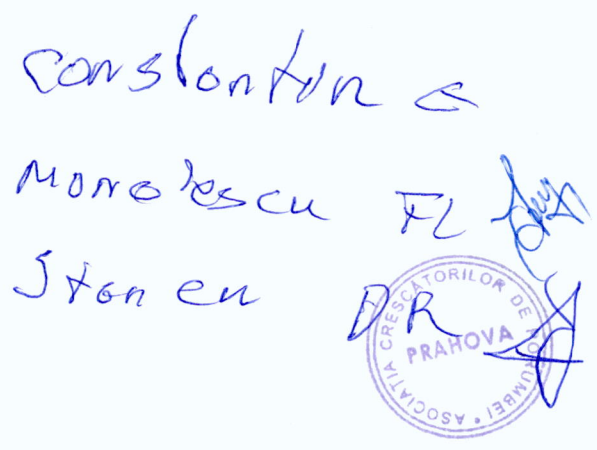 Constantin C
Manolescu FL
Stancu DR
ASOCIATIA CRESCATORILOR DE PORUMBEI
PRAHOVA